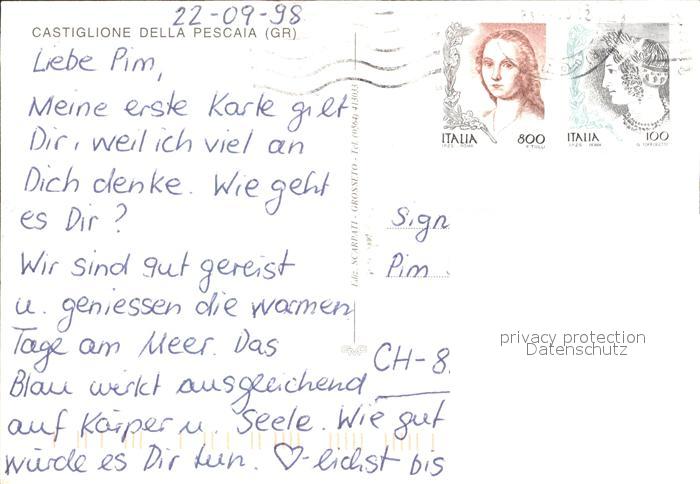 22-09-98
CASTIGLIONE DELLA PESCAIA (GR)
Liebe Pim,
Meine erste Karte gilt
Dir, weil ich viel an
Dich denke. Wie geht
es Dir?
Wir sind gut gereist
u. geniessen die warmen
Tage am Meer. Das
Blau wirkt ausgleichend
auf Körper u. Seele. Wie gut
würde es Dir tun. ♡-lichst bis
Ediz. SCARPATI - GROSSETO - Tel. (0564) 413033
ITALIA 800
I.P.Z.S. ROMA
ITALIA 100
I.P.Z.S. ROMA
Sign
Pim
CH-8
privacy protection
Datenschutz